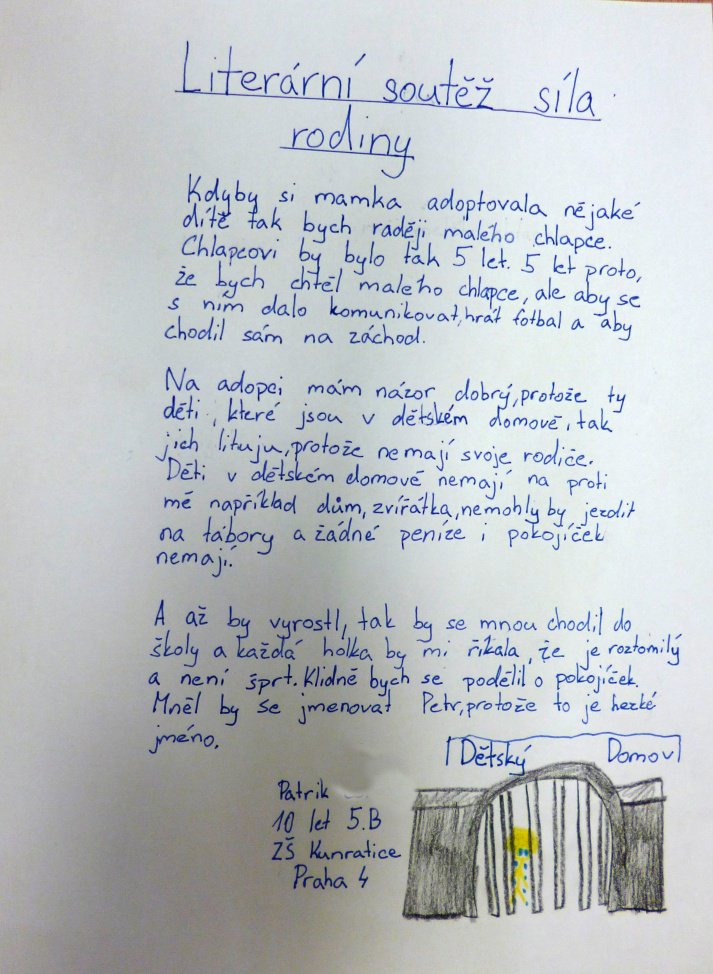 Literární soutěž síla
rodiny
Kdyby si mamka adoptovala nějaké
dítě tak bych raději malého chlapce.
Chlapcovi by bylo tak 5 let. 5 let proto,
že bych chtěl malého chlapce, ale aby se
s ním dalo komunikovat, hrát fotbal a aby
chodil sám na záchod.
Na adopci mám názor dobrý, protože ty
děti, které jsou v dětském domově, tak
jich lituju, protože nemají svoje rodiče.
Děti v dětském domově nemají na proti
mé například dům, zvířátka, nemohly by jezdit
na tábory a žádné peníze i pokojíček
nemají.
A až by vyrostl, tak by se mnou chodil do
školy a každá holka by mi říkala, že je roztomilý
a není šprt. Klidně bych se podělil o pokojíček.
Mněl by se jmenovat Petr, protože to je hezké
jméno.
Dětský Domov
Patrik
10 let 5.B
ZŠ Kunratice
Praha 4